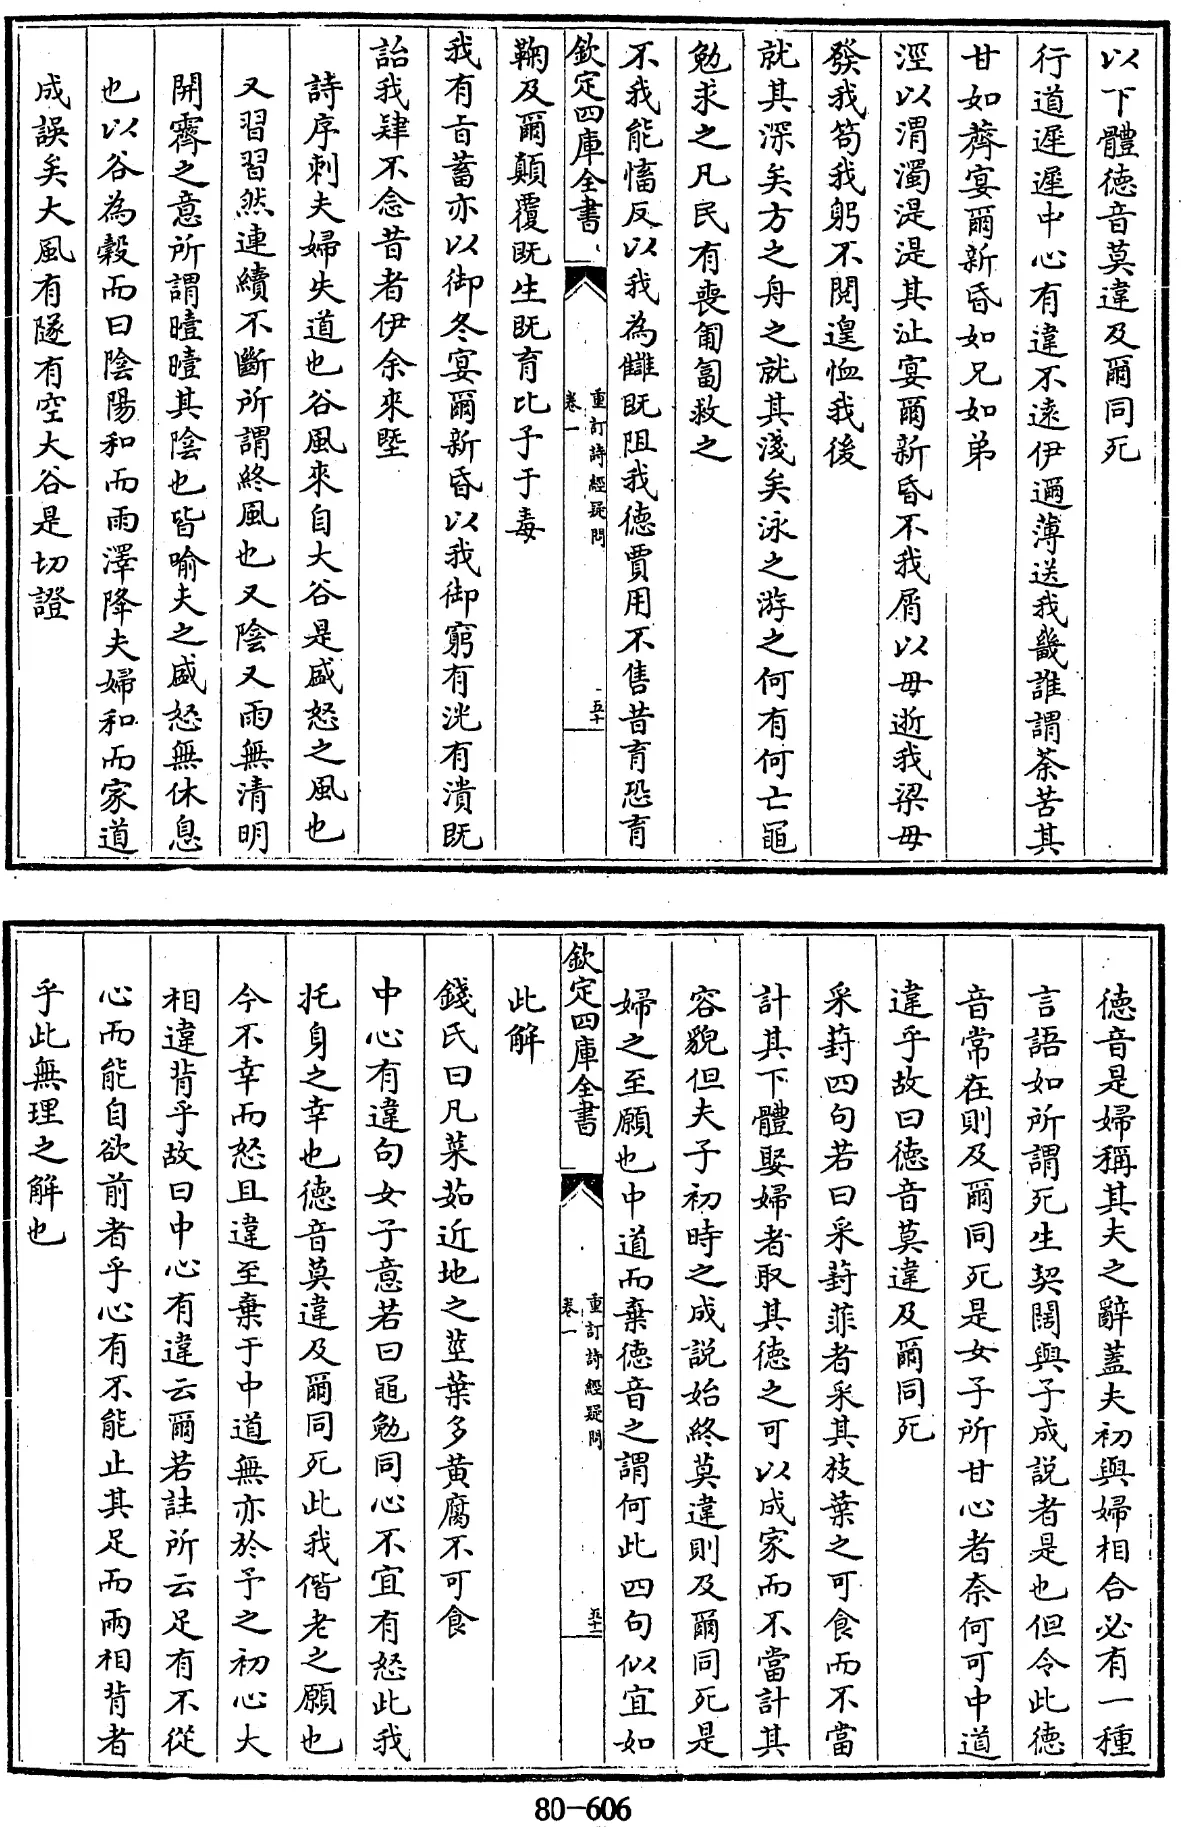 以下體德音莫違及爾同死
行道遲遲中心有違不遠伊邇薄送我畿誰謂荼苦其
甘如薺宴爾新昏如兄如弟
涇以渭濁湜湜其沚宴爾新昏不我屑以毋逝我梁毋
發我笱我躬不閱遑恤我後
就其深矣方之舟之就其淺矣泳之游之何有何亡黽
勉求之凡民有喪匍匐救之
不我能慉反以我為讎既阻我德賈用不售昔育恐育
欽定四庫全書
重訂詩經疑問
卷一
五十
鞠及爾顛覆既生既育比予于毒
我有旨蓄亦以御冬宴爾新昏以我御窮有洸有潰既
詒我肄不念昔者伊余來塈
詩序刺夫婦失道也谷風來自大谷是盛怒之風也
又習習然連續不斷所謂終風也又陰又雨無清明
開霽之意所謂曀曀其陰也皆喻夫之盛怒無休息
也以谷為穀而曰陰陽和而雨澤降夫婦和而家道
成誤矣大風有隧有空大谷是切證
德音是婦稱其夫之辭蓋夫初與婦相合必有一種
言語如所謂死生契闊與子成說者是也但令此德
音常在則及爾同死是女子所甘心者奈何可中道
違乎故曰德音莫違及爾同死
采葑四句若曰采葑菲者采其枝葉之可食而不當
計其下體娶婦者取其德之可以成家而不當計其
容貌但夫子初時之成説始終莫違則及爾同死是
婦之至願也中道而棄德音之謂何此四句似宜如
欽定四庫全書
重訂詩經疑問
卷一
五十一
此解
錢氏曰凡菜茹近地之莖葉多黄腐不可食
中心有違句女子意若曰黽勉同心不宜有怒此我
托身之幸也德音莫違及爾同死此我偕老之願也
今不幸而怒且違至棄于中道無亦於予之初心大
相違背乎故曰中心有違云爾若註所云足有不從
心而能自欲前者乎心有不能止其足而兩相背者
乎此無理之解也
80-606